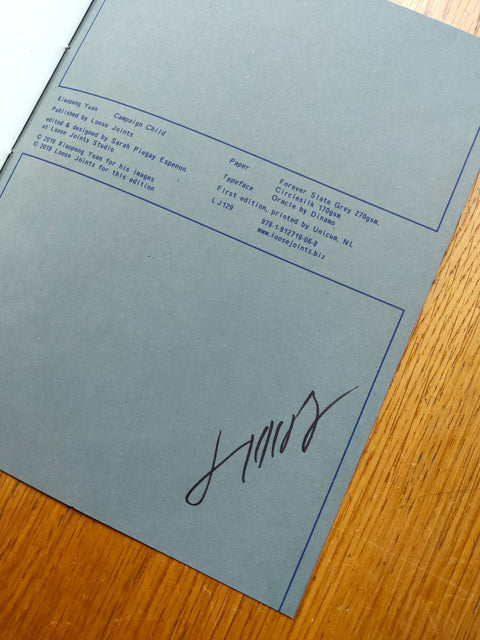 Xiaopeng Yuan Campaign Child
Published by Loose Joints
edited & designed by Sarah Piegay Espenon
at Loose Joints Studio
© 2019 Xiaopeng Yuan for his images
© 2019 Loose Joints for this edition
Paper Forever Slate Grey 270gsm,
Circlesilk 170gsm
Typeface Oracle by Dinamo
First edition, printed by Unicum, NL
LJ129 978-1-912719-06-8
www.loosejoints.biz